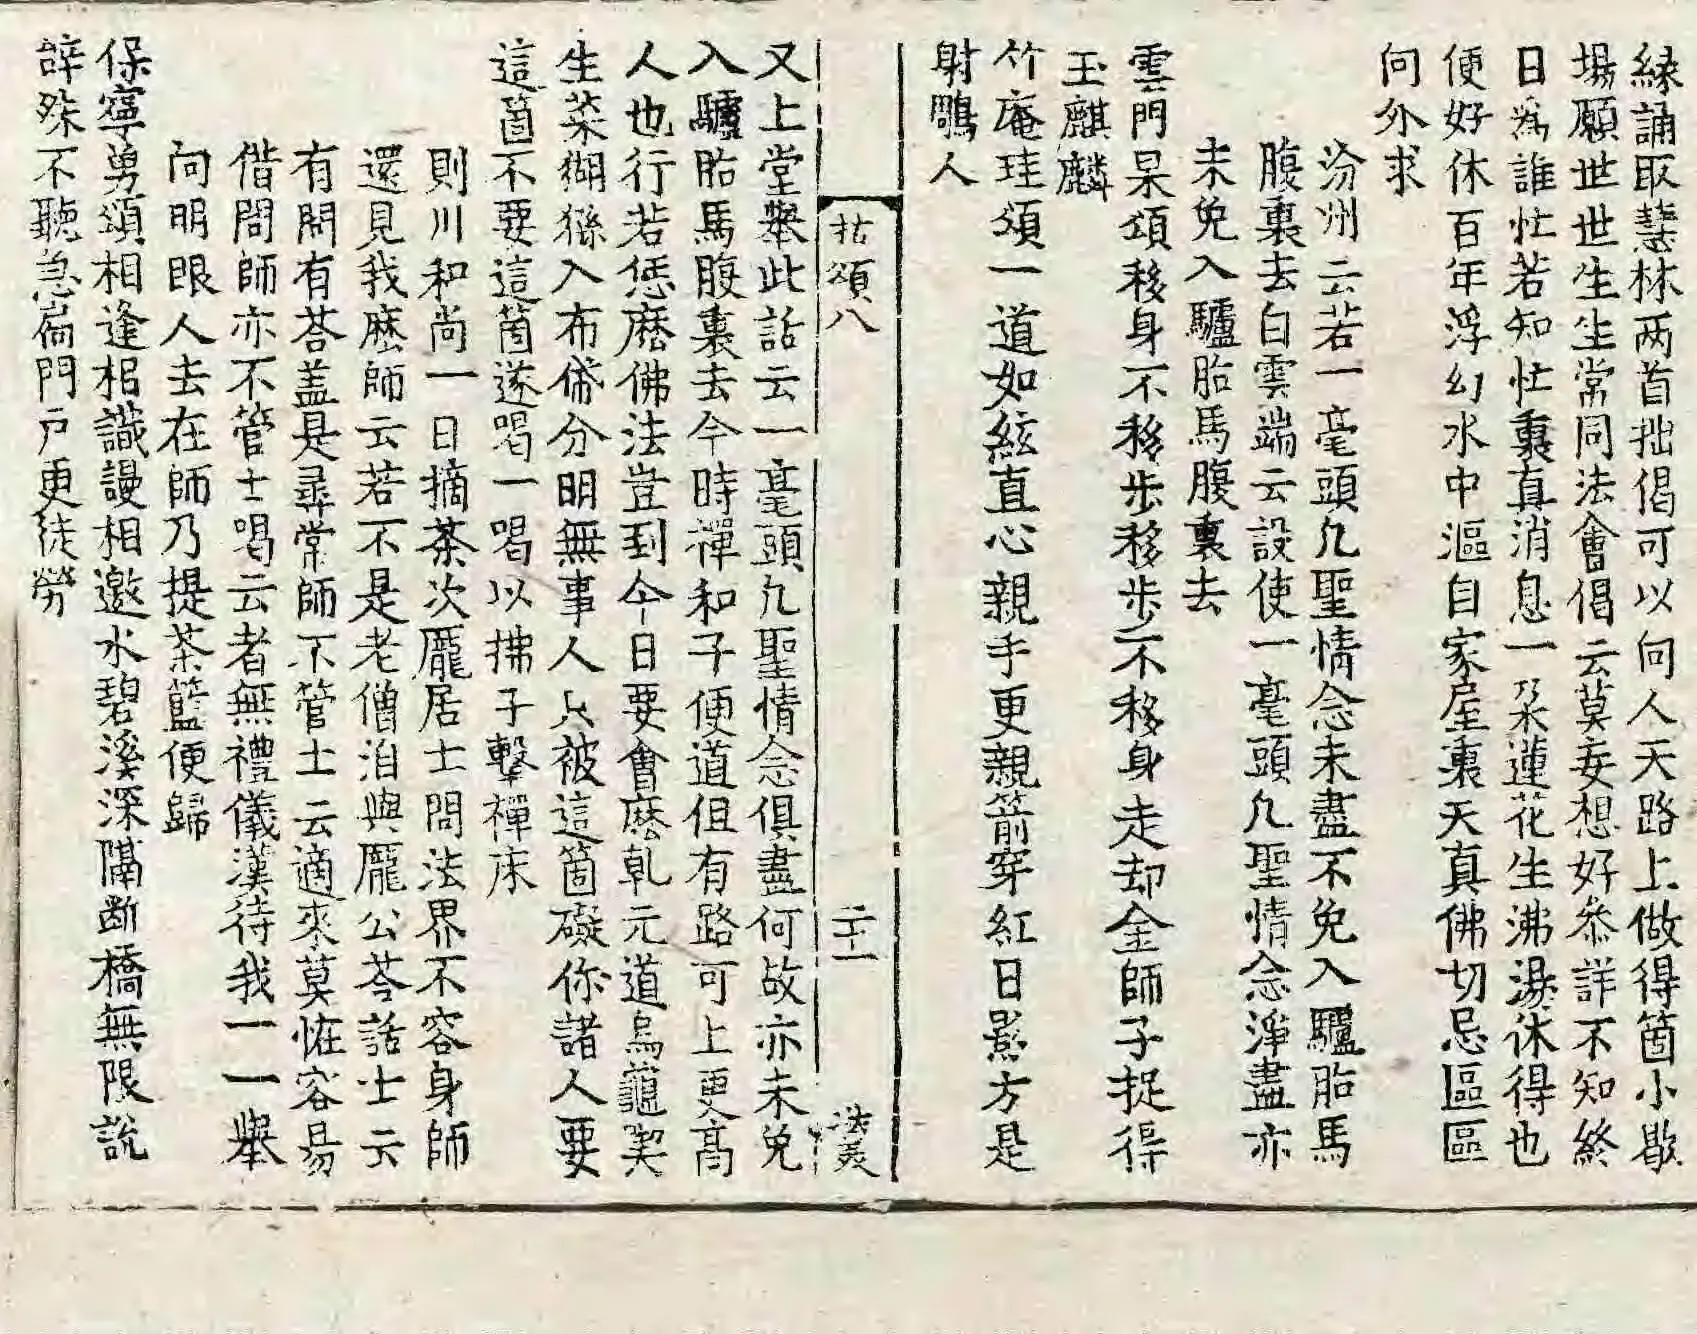 緣誦取慧林两首拙偈可以向人天路上做得箇小歇
場願世世生生常同法會偈云莫妄想好叅詳不知終
日為誰忙若知忙裏真消息一朶蓮花生沸湯休得也
便好休百年浮幻水中漚自家屋裏天真佛切忌區區
向外求
汾州云若一毫頭凢聖情念未盡不免入驢胎馬
腹裏去白雲端云設使一毫頭凢聖情念淨盡亦
未免入驢胎馬腹裏去
雲門杲頌移身不移步移步不移身走却金師子捉得
玉麒麟
竹庵珪頌一道如絃直心親手更親箭穿紅日影方是
射鵰人
拈頌八 二十一
又上堂舉此話云一毫頭凢聖情念俱盡何故亦未免
入驢胎馬腹裏去今時禪和子便道但有路可上更髙
人也行若恁麽佛法豈到今日要會麽乹元道烏龜喫
生菜猢猻入布袋分明無事人只被這箇礙你諸人要
這箇不要這箇遂喝一喝以拂子擊禪床
則川和尚一日摘茶次龐居士問法界不容身師
還見我麽師云若不是老僧洎與龐公荅話士云
有問有荅盖是尋常師不管士云適來莫恠容易
借問師亦不管士喝云者無禮儀漢待我一一舉
向明眼人去在師乃提茶籃便歸
保寧勇頌相逢相識謾相邀水碧溪深隔断橋無限說
辭殊不聽急扃門戸更徒勞